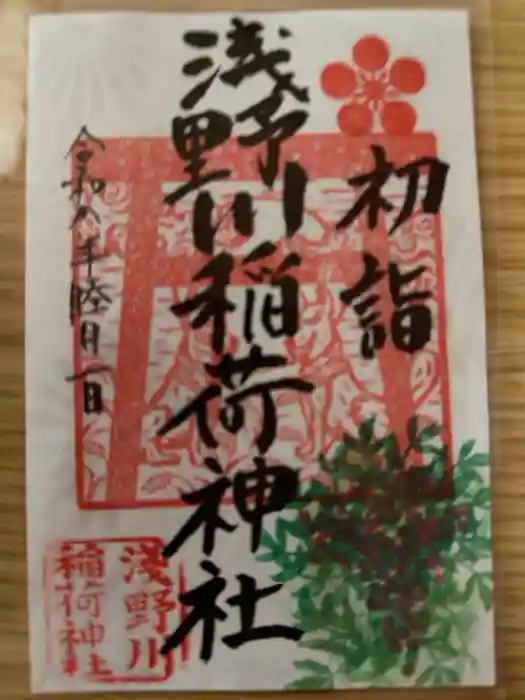 初詣
浅野川稲荷神社
令和八年睦月一日
浅野川
稲荷神社